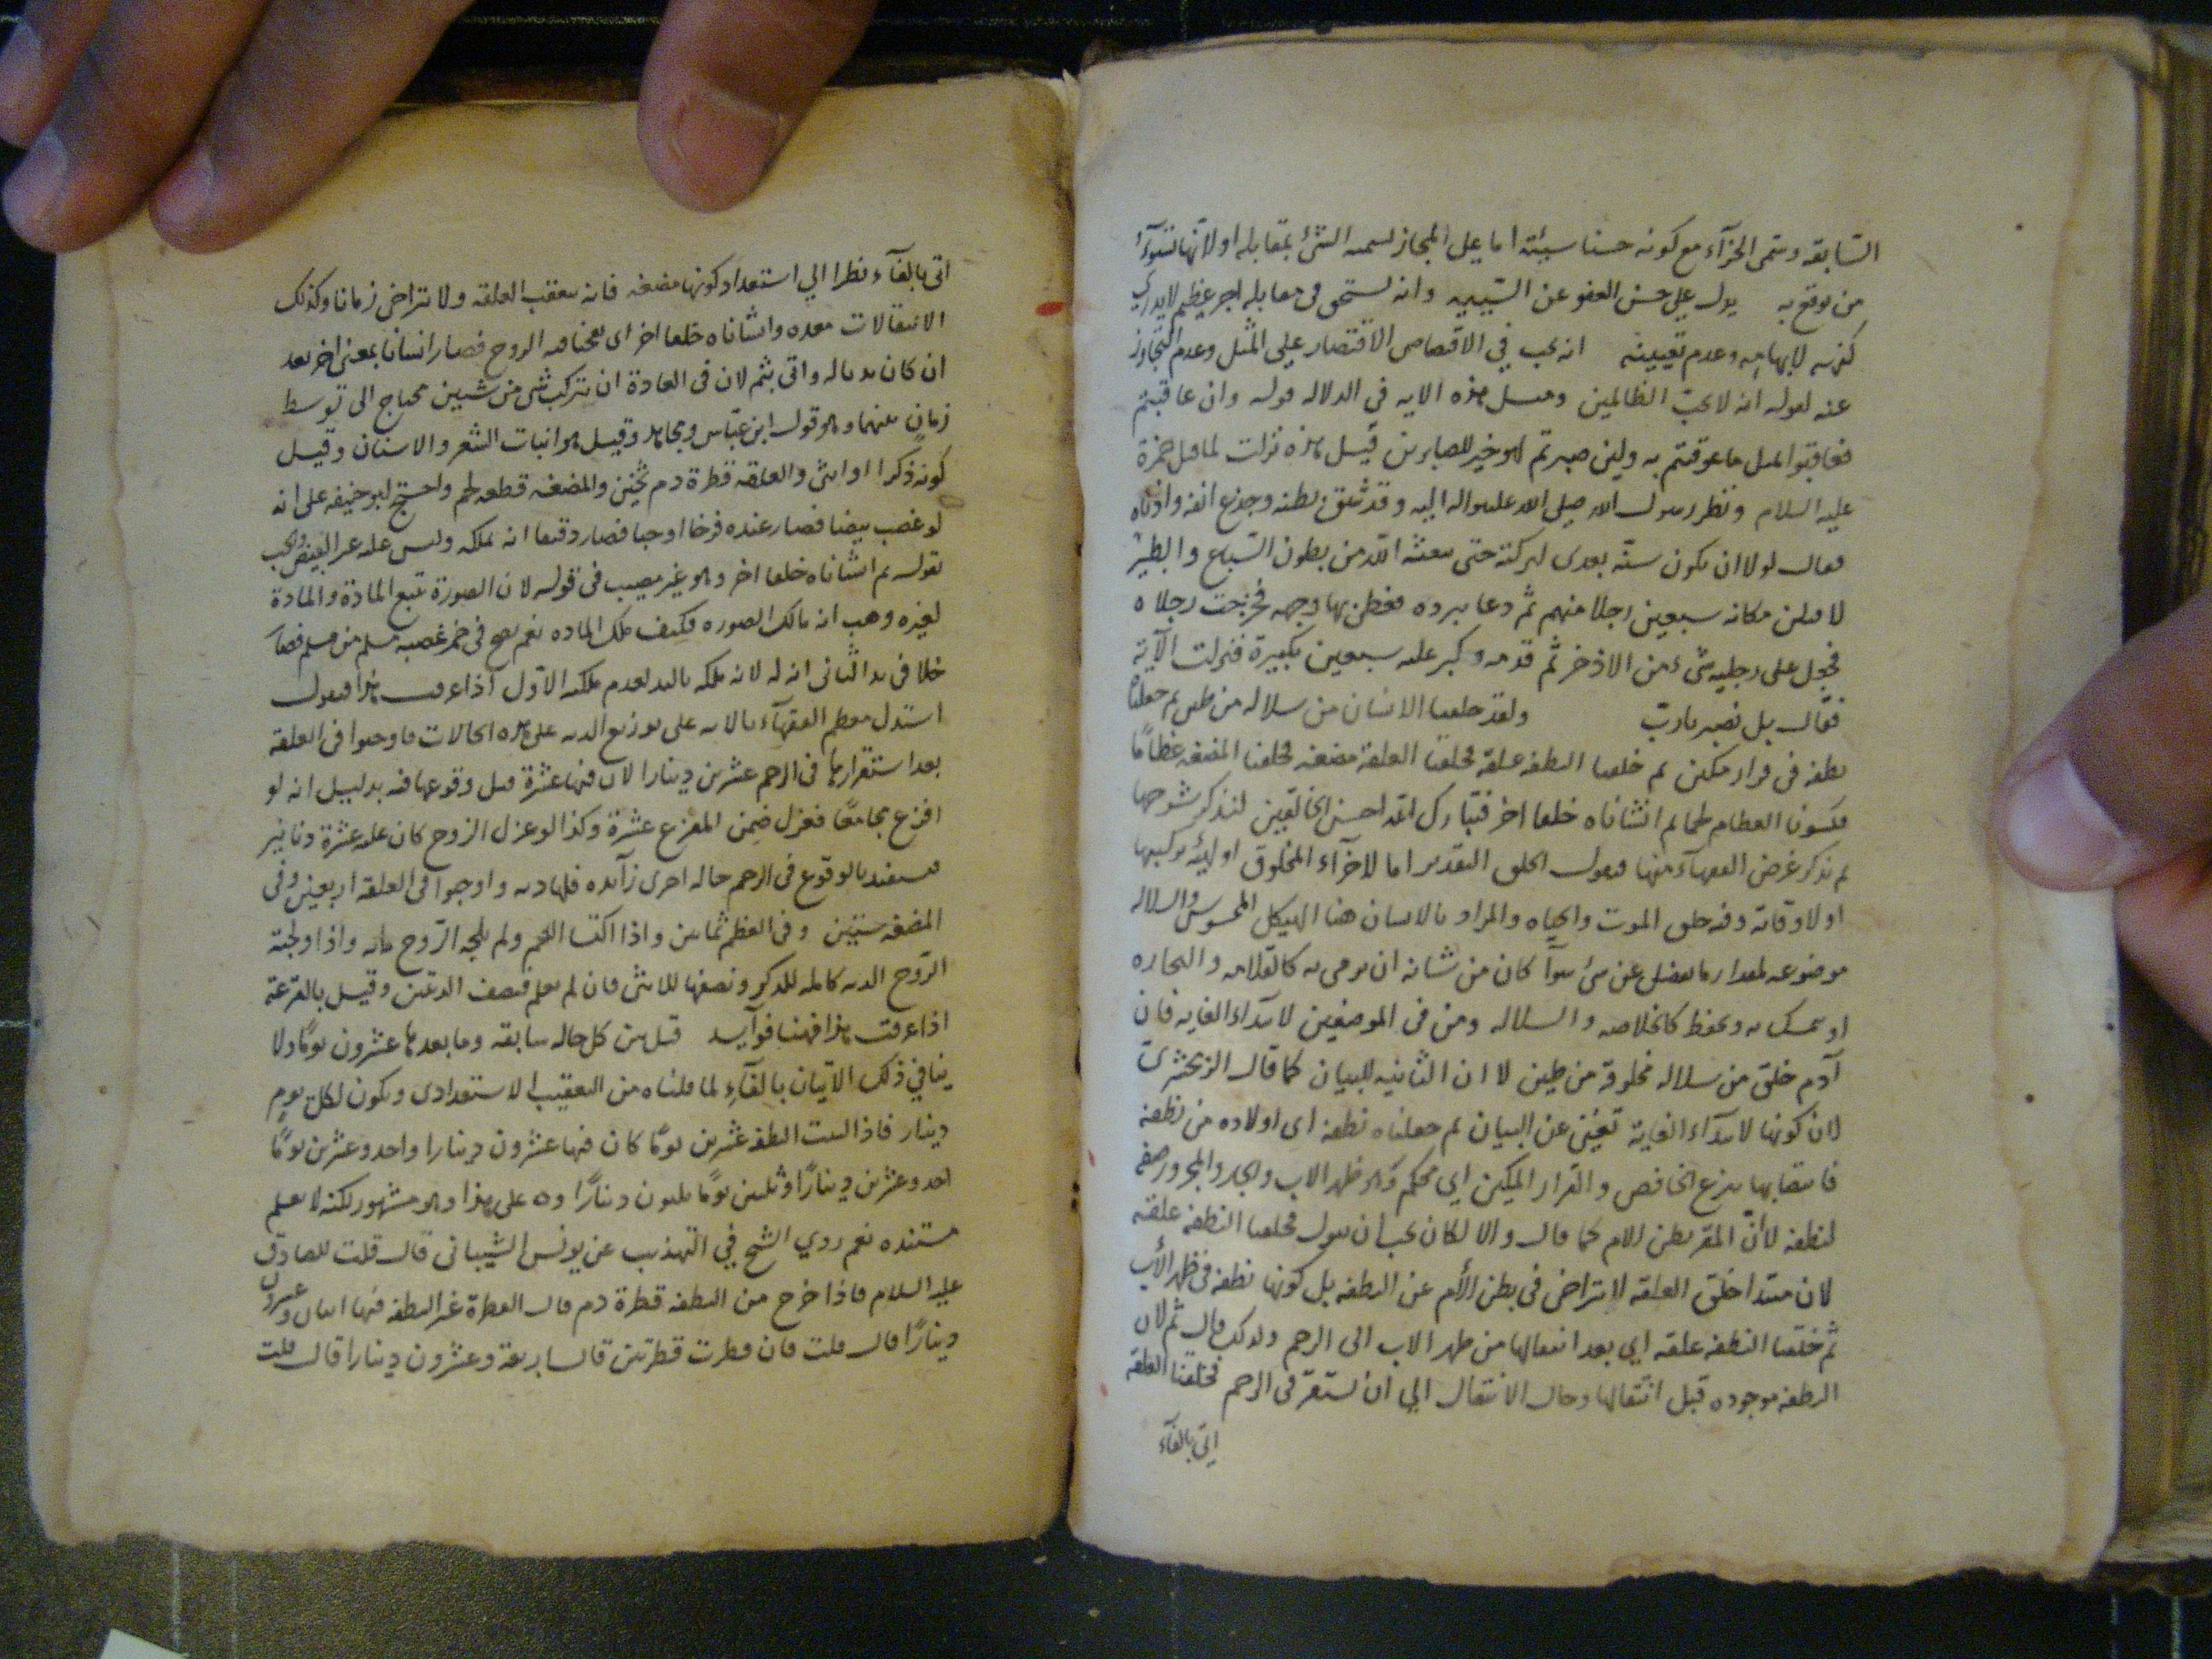 السابقة وسمى الجزآء مع كونه حسنا سيئة اما على المجاز تسمية الشئ بمقابله او لانها تسوء
من توقع به يدل على حسن العفو عن السيئة وانه يستحق فى مقابله اجر عظيم لا يدرى
كنهه لابهامه وعدم تعيينه انه يجب في الاقتصاص الاقتصار على المثل وعدم التجاوز
عنه لقوله انه لا يحب الظالمين ومثل هذه الايه في الدلاله قوله وان عاقبتم
فعاقبوا بمثل ما عوقبتم به ولئن صبرتم لهو خير للصابرين قيل هذه نزلت لما قتل حمزة
عليه السلام ونظر رسول الله صلى الله عليه واله اليه وقد شق بطنه وجدع انفه واذناه
فقال لولا ان تكون سنّة بعدى لتركته حتى يبعثه الله من بطون السباع والطير
لاقتلن مكانه سبعين رجلا منهم ثم دعا ببرده فغطى بها وجهه فخرجت رجلاه
فجعل على رجليه شئ من الاذخر ثم قدمه وكبر عليه سبعين تكبيرة فنزلت الآية
فقال بل نصبر يا رب ولقد خلقنا الانسان من سلاله من طين ثم جعلناه
نطفه فى قرار مكين ثم خلقنا النطفه علقه فخلقنا العلقة مضغه فخلقنا المضغه عظاما
فكسونا العظام لحما ثم انشاناه خلقا اخر فتبارك الله احسن الخالقين لنذكر شرحها
ثم نذكر غرض الفقهآء منها فنقول الخلق التقدير اما لاجزآء المخلوق او لهيئه تركيبها
او لاوقاته ومنه خلق الموت والحياه والمراد بالانسان هنا الهيكل المحسوس والسلاله
موضوعه لمقدار ما يفضل عن شئ سوآ كان من شانه ان يرمى به كالقلامه والنجاره
او يتمسك به ويحفظ كالخلاصه والسلاله ومن فى الموضعين لابتداء الغايه فان
آدم خلق من سلاله مخلوقة من طين لا ان الثانيه للبيان كما قال الزمخشرى
لان كونها لابتداء الغاية تغنى عن البيان ثم جعلناه نطفه اى اولاده من نطفه
فانتصابها بنزع الخافض والقرار المكين اي محكم وهو ظهر الاب والجار والمجرور صفه
لنطفه لا ان المقر بطن الام كما قال والا لكان يجب ان يقول فخلقنا النطفه علقه
لان مبتدا خلق العلقه لا تتراخى فى بطن الأم عن النطفه بل كونها نطفه فى ظهر الأب
ثم خلقنا النطفه علقه اي بعد انتقالها من ظهر الاب الى الرحم ولذلك قال ثم لان
النطفه موجوده قبل انتقالها وحال الانتقال الي ان تستقر فى الرحم فخلقنا العلقه
اتى بالفآء
اتى بالفآء نظرا الي استعداد كونها مضغه فانه يعقب العلقه ولا تتراخى زمانا وكذلك
الانتقالات بعده وانشاناه خلقا اخر اى نفخنا فيه الروح فصار انسانا بمعنى اخر بعد
ان كان واتى بثم لان فى العادة ان تركب شئ من شيئين محتاج الى توسط
زمان بينهما وهو قول ابن عباس ومجاهد وقيل هو انبات الشعر والاسنان وقيل
كونه ذكرا او انثى والعلقه قطرة دم ثخين والمضغه قطعه لحم واحتج ابو حنيفه على انه
لو غصب بيضا فصار عنده فرخا او حبا فصار انه يملكه وليس عليه غير البيض والحب
بقوله ثم انشاناه خلقا اخر وهو غير مصيب فى قوله لان الصورة تتبع المادة والمادة
لغيره وهب انه مالك الصوره فكيف ملك الماده نعم يصح فى خمر غصبه مسلم من مسلم فصار
خلا فى يد الثانى انه له لانه ملكه باليد لعدم ملكه الاول اذا عرفت هذا فنقول
استدل معظم الفقهآء بالايه على توزيع الديه على هذه الحالات فاوجبوا فى العلقة
بعد استقرارها فى الرحم عشرين دينارا لان فيها عشرة قبل وقوعها فيه بدليل انه لو
افزع مجامعا فعزل ضمن المفزع عشرة وكذا لو عزل الزوج كان عليه عشرة دنانير
فيستفيد بالوقوع فى الرحم حاله اخرى زآئده فلها ديه واوجبوا فى العلقة اربعين وفى
المضغه ستين وفى العظم ثمانين واذا اكتسا اللحم ولم يلجه الروح مايه واذا ولجته
الروح الديه كامله للذكر ونصفها للانثى فان لم يعلم فنصف الديتين وقيل بالقرعة
اذا عرفت هذا فهنا فوآيد قيل بين كل حاله سابقه وما بعدها عشرون يوما ولا
ينافي ذلك الاتيان بالفآء لما قلناه من التعقيب الاستعدادى ويكون لكل يوم
دينار فاذا النطفه عشرين يوما كان فيها عشرون دينارا واحد وعشرين يوما
احد وعشرين دينارا وثلثين يوما ثلثون دينارا وه على هذا وهو مشهور لكنه لا يعلم
مستنده نعم روي الشيخ في التهذيب عن يونس الشيبانى قال قلت للصادق
عليه السلام فاذا خرج من النطفه قطرة دم قال القطرة عشر النطفه فيها اثنان وعشرون
دينارا قال قلت فان قطرت قطرتين قال اربعة وعشرون دينارا قال قلت